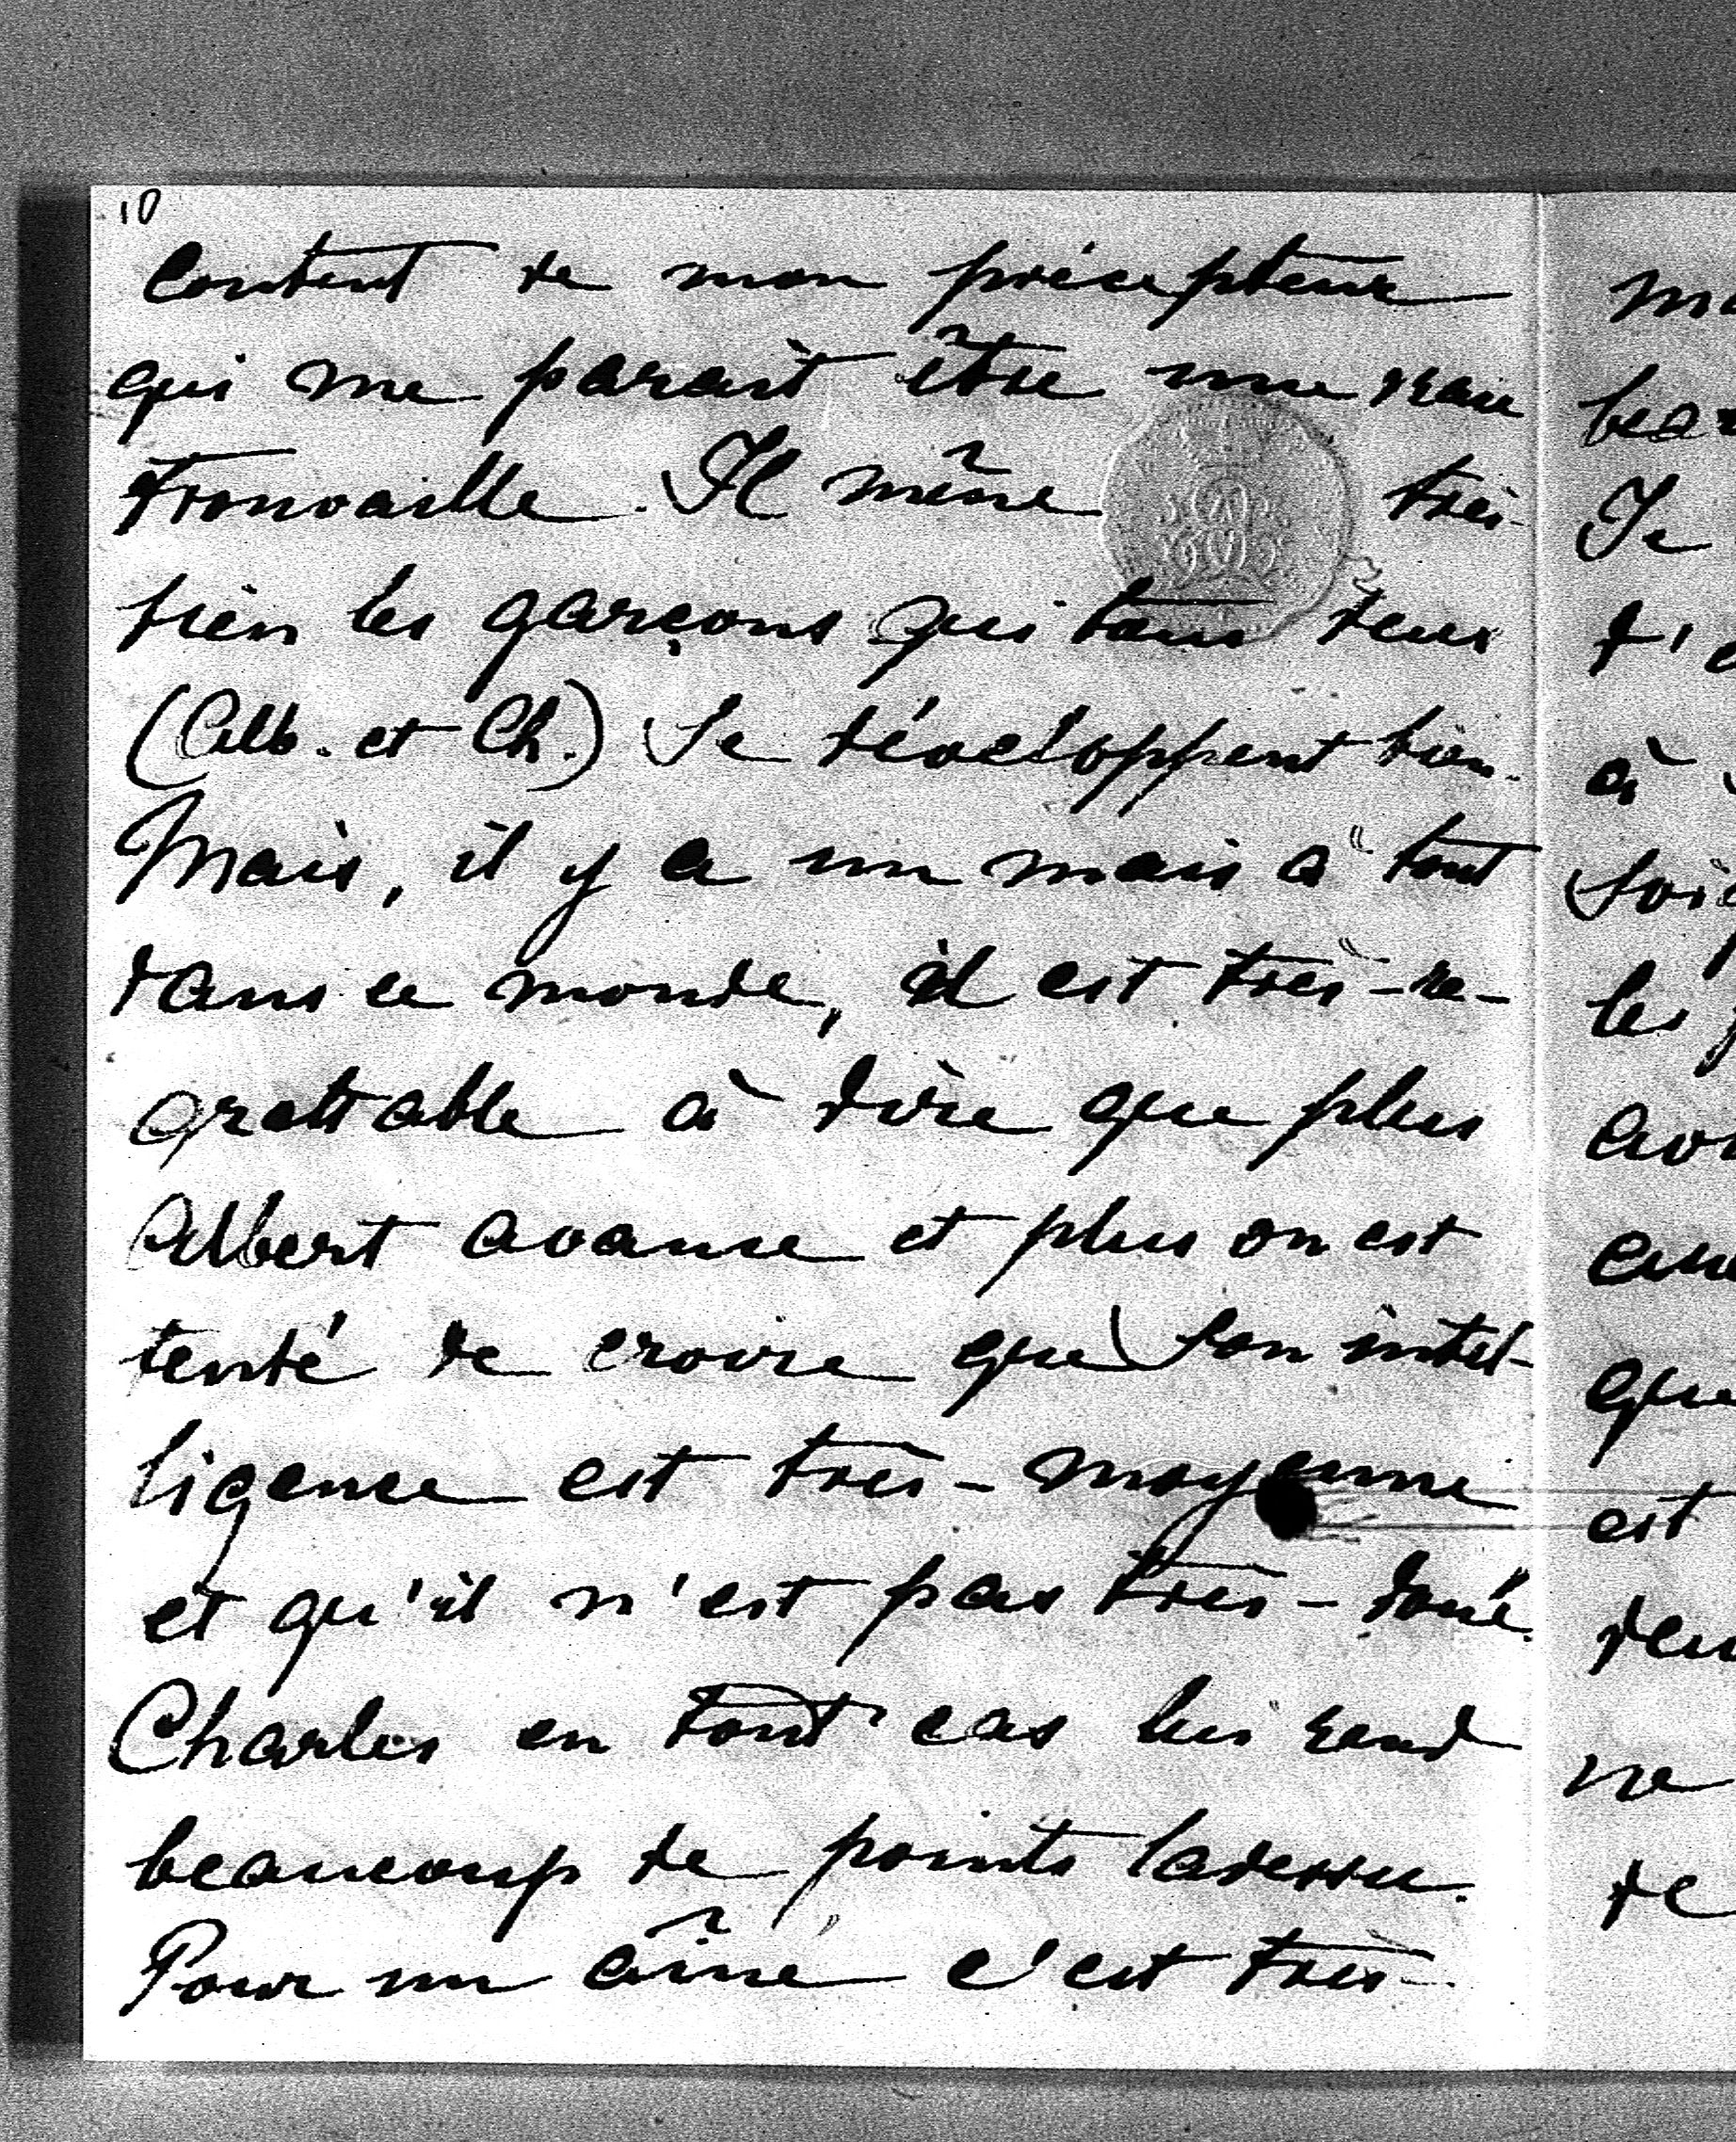 10
content de mon précepteur
qui me parait être une vraie
trouvaille. Il mêne très
bien les garçons qui tous deux
(Alb. et Ch.) se développent bien.
Mais, il y a un mais à tout
dans ce monde, il est très-re-
grettable à dire que plus
Albert avance et plus on est
tenté de croire que son intel-
ligence est très-moyenne
et qu'il n'est pas très-doué.
Charles en tout cas lui rend
beaucoup de points ladessu.
Pour un aîné c'est très
Je
à
les
est
ne
de